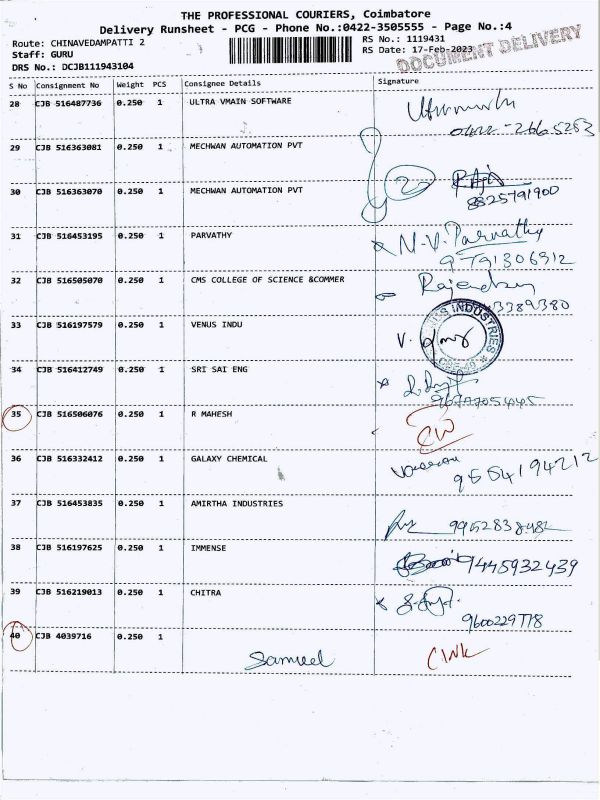 THE PROFESSIONAL COURIERS, Coimbatore
Delivery Runsheet - PCG - Phone No.:0422-3505555 - Page No.:4
Route: CHINAVEDAMPATTI 2 RS No.: 1119431
Staff: GURU RS Date: 17-Feb-2023
DOCUMENT DELIVERY
DRS No.: DCJB111943104
S No Consignment No Weight PCS Consignee Details Signature
28 CJB 516487736 0.250 1 ULTRA VMAIN SOFTWARE
0422-2665283
29 CJB 516363081 0.250 1 MECHWAN AUTOMATION PVT
30 CJB 516363070 0.250 1 MECHWAN AUTOMATION PVT
8825791900
31 CJB 516453195 0.250 1 PARVATHY N.V. Parvathy
9791306912
32 CJB 516505070 0.250 1 CMS COLLEGE OF SCIENCE &COMMER
33 CJB 516197579 0.250 1 VENUS INDU
INDUSTRIES
34 CJB 516412749 0.250 1 SRI SAI ENG
35 CJB 516506076 0.250 1 R MAHESH
36 CJB 516332412 0.250 1 GALAXY CHEMICAL
37 CJB 516453835 0.250 1 AMIRTHA INDUSTRIES
38 CJB 516197625 0.250 1 IMMENSE 9445932439
39 CJB 516219013 0.250 1 CHITRA
9600229778
40 CJB 4039716 0.250 1
Samuel